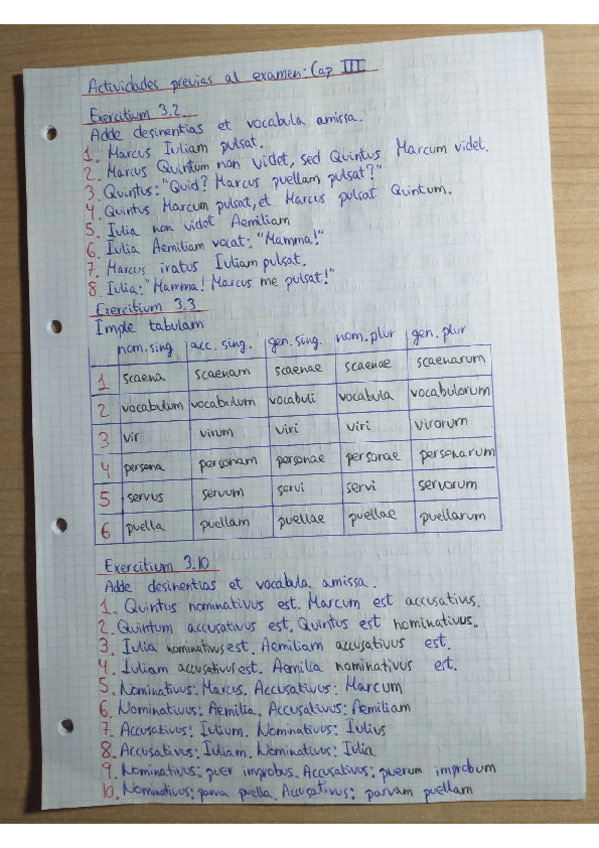 Actividades previas al examen: Cap III
Exercitium 3.2
Adde desinentias et vocabula amissa.
1. Marcus Iuliam pulsat.
2. Marcus Quintum non videt, sed Quintus Marcum videt.
3. Quintus: "Quid? Marcus puellam pulsat?"
4. Quintus Marcum pulsat, et Marcus pulsat Quintum.
5. Iulia non videt Aemiliam
6. Iulia Aemiliam vocat: "Mamma!"
7. Marcus iratus Iuliam pulsat.
8. Iulia: "Mamma! Marcus me pulsat!"
Exercitium 3.3
Imple tabulam
nom. sing acc. sing. gen. sing. nom. plur gen. plur
1 scaena scaenam scaenae scaenae scaenarum
2 vocabulum vocabulum vocabuli vocabula vocabulorum
3 vir virum viri viri virorum
4 persona personam personae personae personarum
5 servus servum servi servi servorum
6 puella puellam puellae puellae puellarum
Exercitium 3.10
Adde desinentias et vocabula amissa.
1. Quintus nominativus est. Marcum est accusativus.
2. Quintum accusativus est. Quintus est nominativus.
3. Iulia nominativus est. Aemiliam accusativus est.
4. Iuliam accusativus est. Aemilia nominativus est.
5. Nominativus: Marcus. Accusativus: Marcum
6. Nominativus: Aemilia. Accusativus: Aemiliam
7. Accusativus: Iulium. Nominativus: Iulius
8. Accusativus: Iuliam. Nominativus: Iulia
9. Nominativus: puer improbus. Accusativus: puerum improbum
10. Nominativus: parva puella. Accusativus: parvam puellam